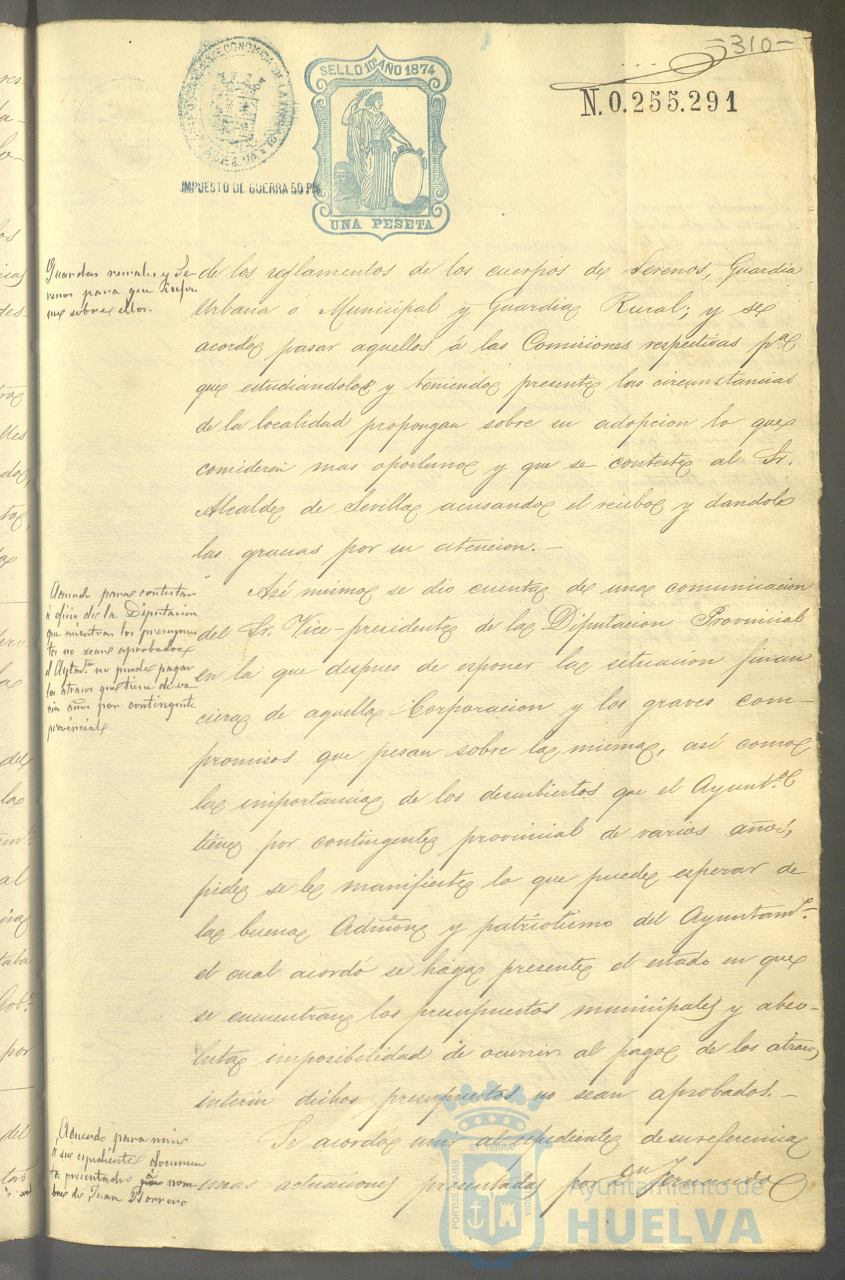 -310-
SELLO 10º AÑO 1874
N. 0.255.291
IMPUESTO DE GUERRA 50 P%
UNA PESETA
Guardas rurales y Se-
renos para que infor
me sobre ellos.
de los reglamentos de los cuerpos de Serenos, Guardia
Urbana o Municipal y Guardia Rural; y se
acordó pasar aquellos á las Comisiones respectivas pª
que estudiandolos y teniendo presente las circunstancias
de la localidad propongan sobre su adopcion lo que
consideren mas oportuno y que se conteste al Sr.
Alcalde de Sevilla acusando el recibo y dandole
las gracias por su atencion.-
Acuerdo para contestar
á oficio de la Diputacion
que mientras los presupues
tos no sean aprobados
el Aytamº no puede pagar
los atrasos que tiene de va
rios años por contingente
provincial
Asi mismo se dio cuenta de una comunicacion
del Sr. Vice-presidente de la Diputacion Provincial
en la que despues de esponer la situacion finan
ciera de aquella Corporacion y los graves com-
promisos que pesan sobre la misma, asi como
la importancia de los descubiertos que el Ayuntº
tiene por contingente provincial de varios años,
pide se le manifieste lo que puede esperar de
la buena Admon y patriotismo del Ayuntamº
el cual acordó se haga presente el estado en que
se encuentran los presupuestos municipales y abso-
luta imposibilidad de ocurrir al pago de los atrasos
interin dichos presupuestos no sean aprobados.-
Acuerdo para unir
á su espediente documen
tos presentados á nom-
bre de Juan Borrero
Se acordó unir al espediente de su referencia
unas actuaciones presentadas por Dn Fernando
PORTUS MARIS
ET TERRAE
CUSTODIA
Ayuntamiento de
HUELVA